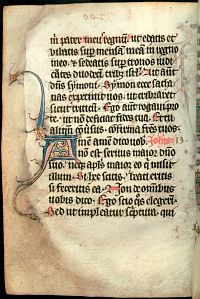 m pater meus regnum. ut edatis et
bibatis sup mensam meam in regno
meo. et sedeatis sup tronos iudi
cantes duodecim tribus isrl. Ait aut
dns symoni. Symon ecce satha
nas expetiuit uos. ut cribraret
sicut triticum. Ego aut rogaui pro
te. ut non deficiat fides tua. Et tu
aliqn confirma fres tuos.
Amen amen dico uob. Johis 13.
non est seruus maior dno
suo. neqz apls maior eo qi misit
illum. Si hec scitis. beati eritis
si feceritis ea. Non de omnibus
uobis dico. Ego scio qs elegerim.
Sed ut impleatur scptura. qui